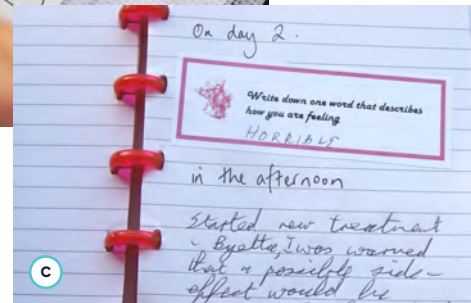 On day 2.
Write down one word that describes
how you are feeling
HORRIBLE
in the afternoon
Started new treatment
- Byetta, I was warned
that a possible side-
effect would be
C